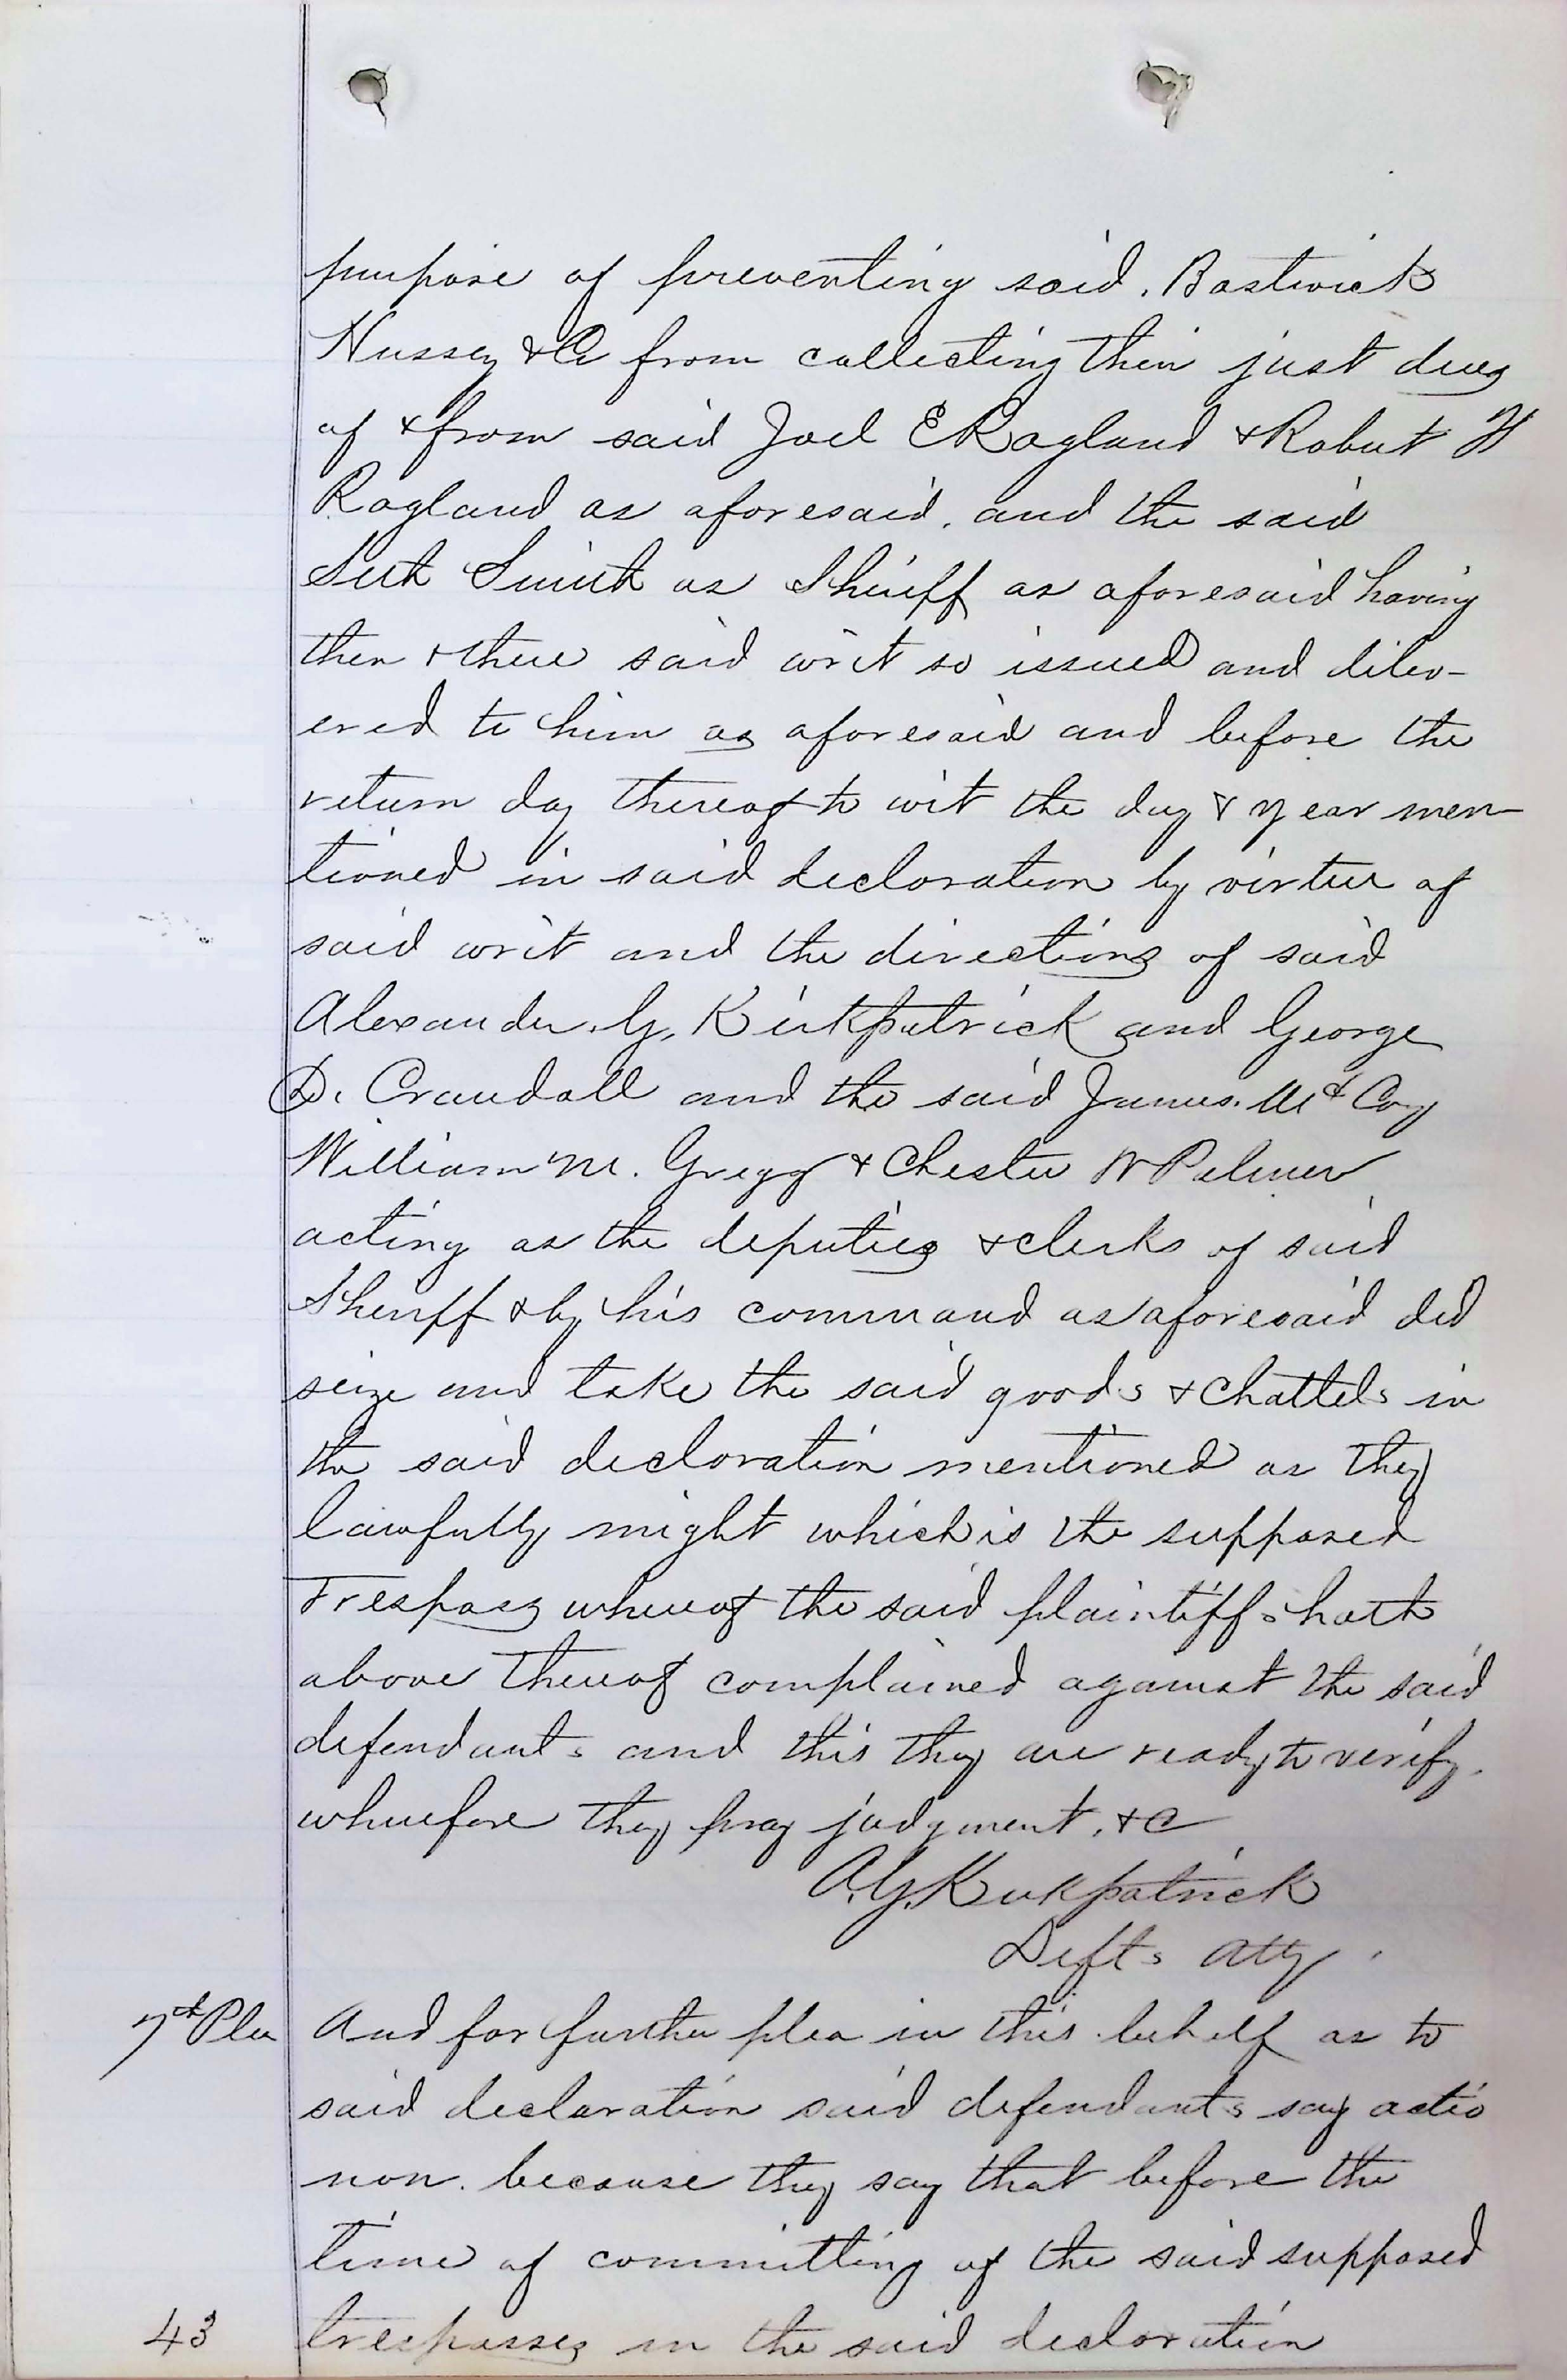 purpose of preventing said. Bostwick
Hussey & Co from collecting their just dues
of & from said Joel E Ragland & Robert H
Ragland as aforesaid. and the said
Seth Smith as Sheriff as aforesaid having
then & there said writ so issued and deliv-
ered to him as aforesaid and before the
return day thereof to wit the day & year men-
tioned in said declaration by virtue of
said writ and the directions of said
Alexander. G. Kirkpatrick and George
D. Crandall and the said James. McCoy
William M. Gregg & Chester W Palmer
acting as the deputies & clerks of said
Sheriff & by his command as aforesaid did
seize and take the said goods & chattels in
the said declaration mentioned as they
lawfully might which is the supposed
Trespass whereof the said plaintiffs hath
above thereof complained against the said
defendants and this they are ready to verify.
wherefore they pray judgment. &c
A. G. Kirkpatrick
Defts Atty.
7th Plea And for further plea in this behalf as to
said declaration said defendants say actio
non. because they say that before the
time of committing of the said supposed
43 trespasses in the said declaration